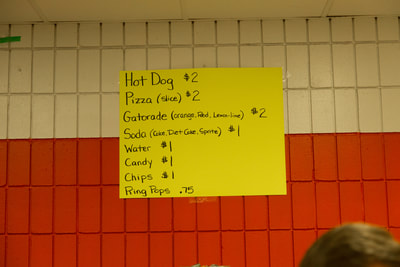 Hot Dog $2
Pizza (slice) $2
Gatorade (orange, Red, Lemon-Lime) $2
Soda (Coke, Diet Coke, Sprite) $1
Water $1
Candy $1
Chips $1
Ring Pops .75